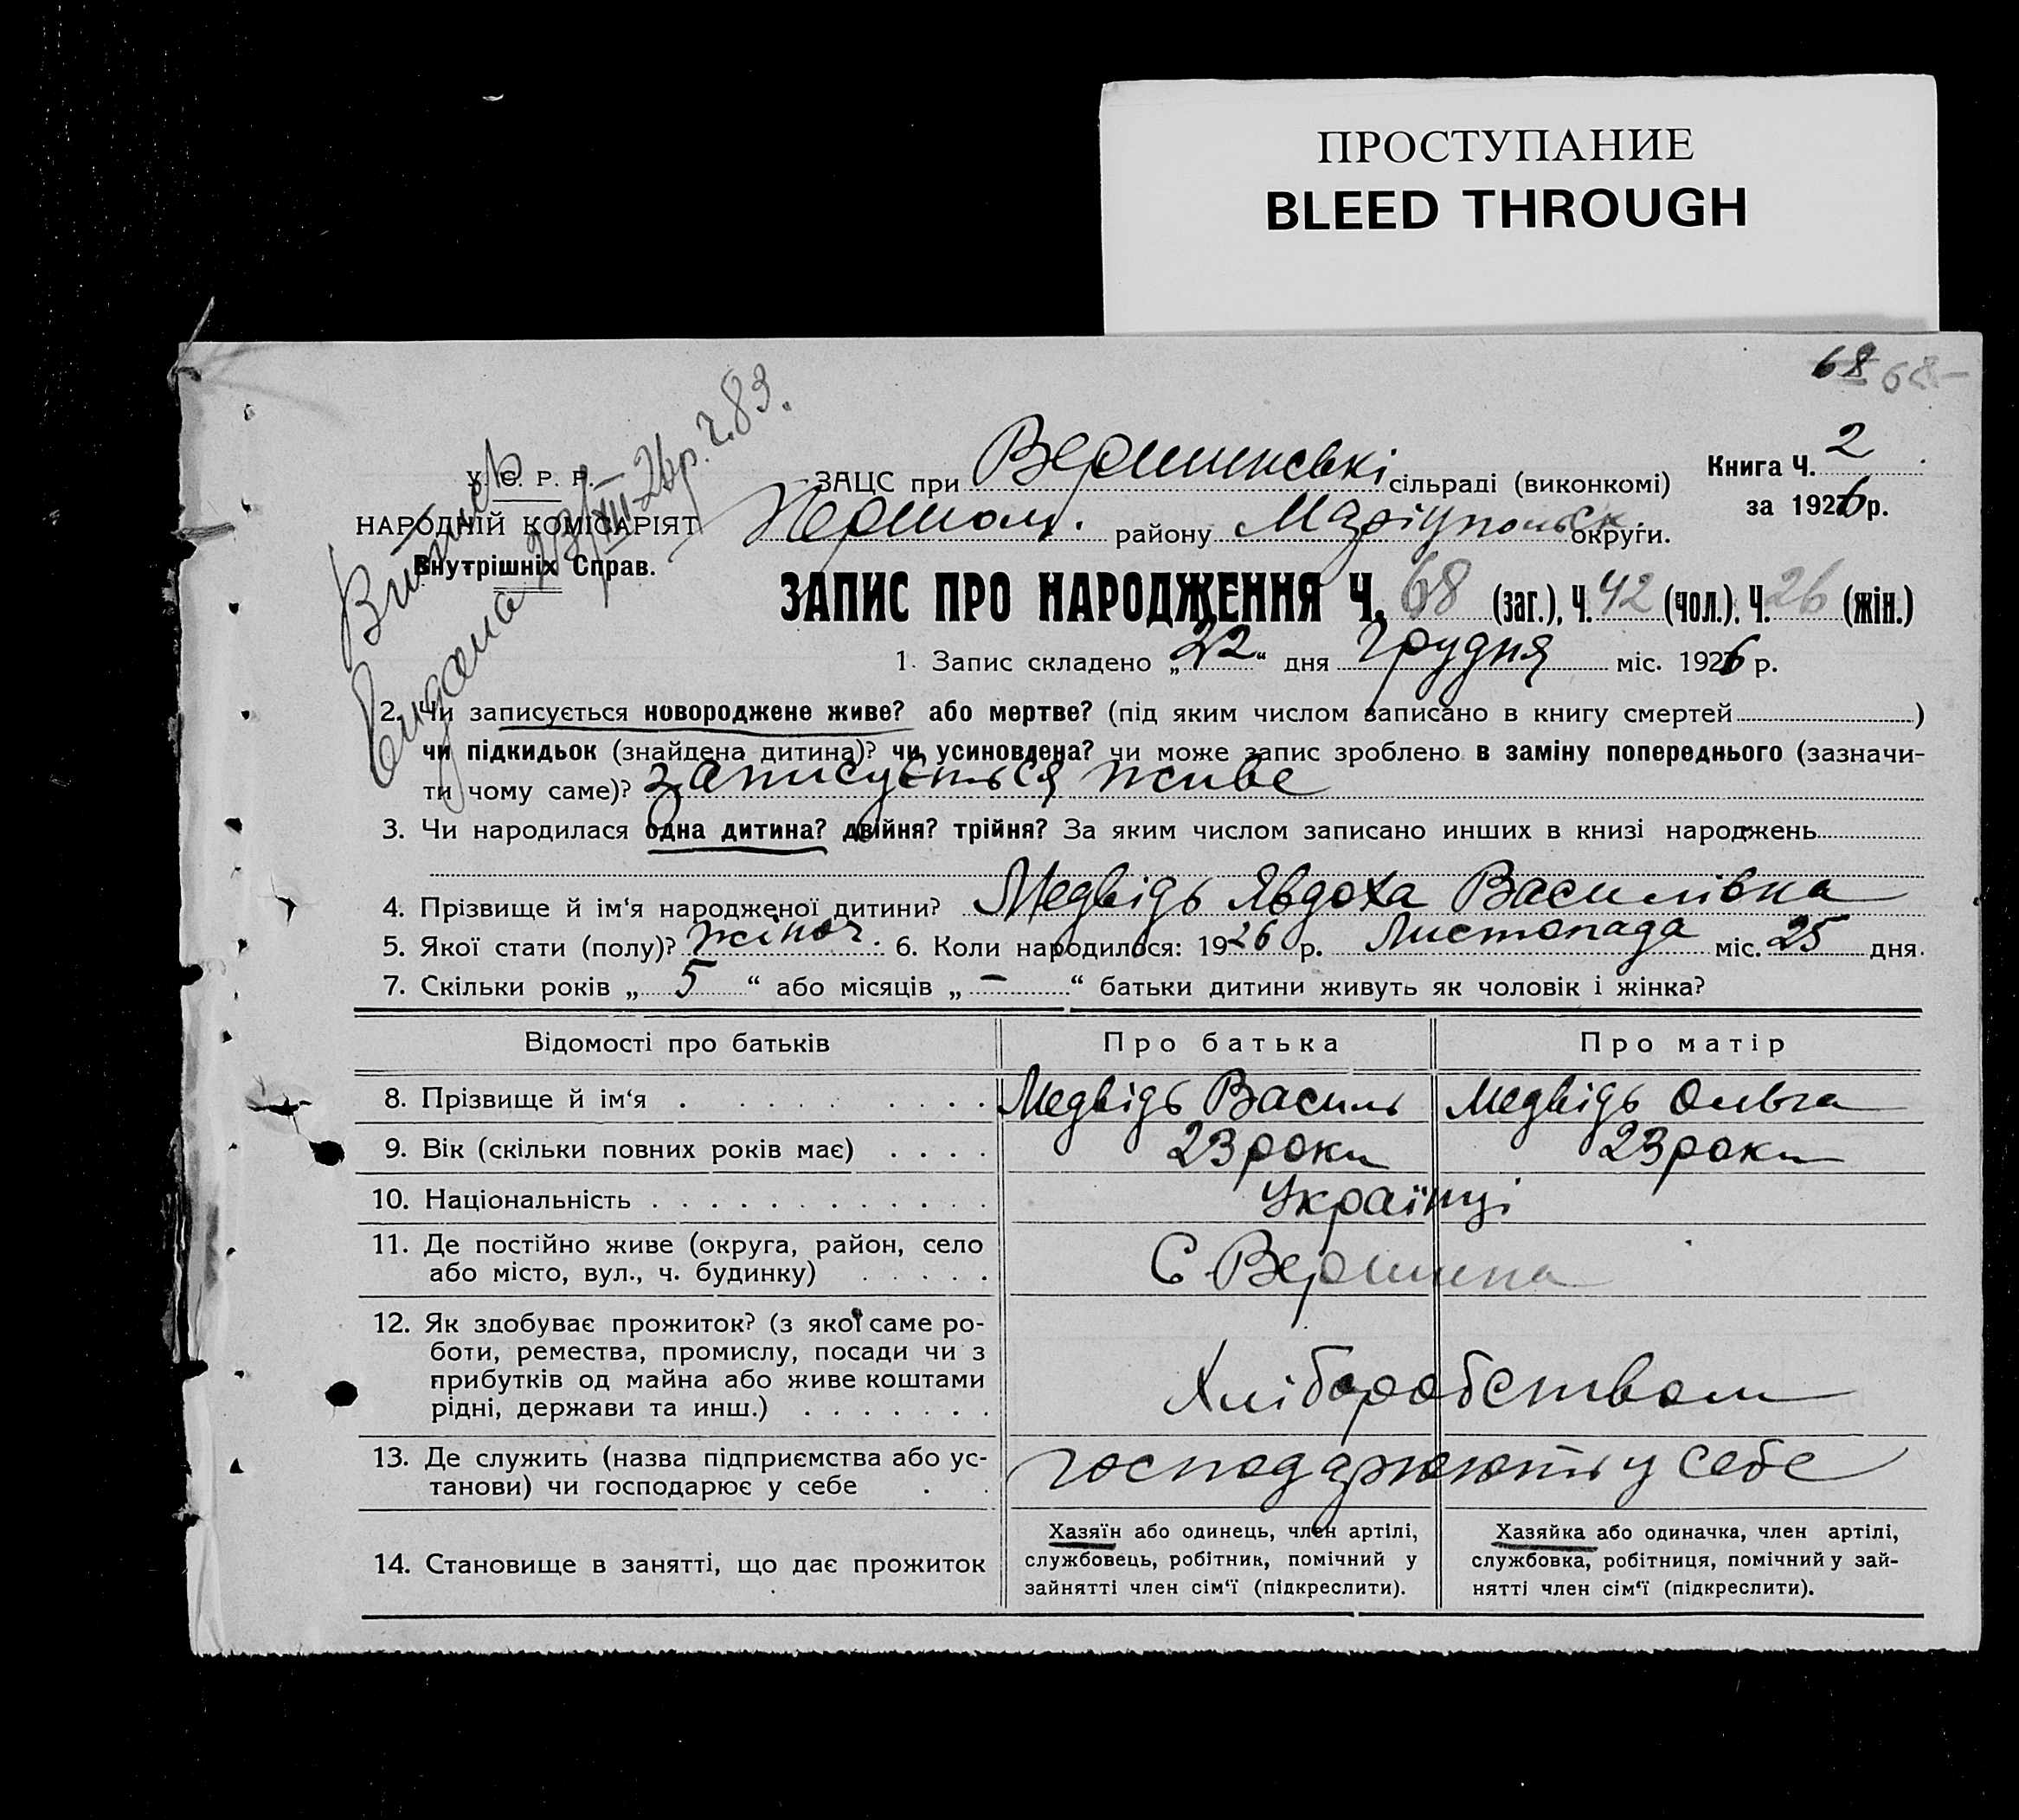 ПРОСТУПАНИЕ
BLEED THROUGH
68 68
Витис
Видана 23/XII-26р. ч. 83.
У. С. Р. Р.
НАРОДНІЙ КОМІСАРІЯТ
Внутрішніх Справ.
ЗАЦС при Вершинські сільраді (виконкомі)
Першом. району Маріупольск. округи.
Книга Ч. 2
за 1926 р.
ЗАПИС ПРО НАРОДЖЕННЯ Ч. 68 (заг.), Ч. 42 (чол.). Ч. 26 (жін.)
1. Запис складено „22“ дня Грудня міс. 1926 р.
2. Чи записується новороджене живе? або мертве? (під яким числом записано в книгу смертей )
чи підкидьок (знайдена дитина)? чи усиновлена? чи може запис зроблено в заміну попереднього (зазначи-
ти чому саме)? записується живе
3. Чи народилася одна дитина? двійня? трійня? За яким числом записано инших в книзі народжень
4. Прізвище й ім‘я народженої дитини? Медвідь Явдоха Василівна
5. Якої стати (полу)? жіноч. 6. Коли народилося: 1926 р. Листопада міс. 25 дня.
7. Скільки років „ 5 “ або місяців „ — “ батьки дитини живуть як чоловік і жінка?
Відомості про батьків Про батька Про матір
8. Прізвище й ім‘я . . . . . . . . Медвідь Василь Медвідь Ольга
9. Вік (скільки повних років має) . . . . 23 роки 23 роки
10. Національність . . . . . . . . . . . . Українці
11. Де постійно живе (округа, район, село
або місто, вул., ч. будинку) . . . . . С. Вершина
12. Як здобуває прожиток? (з якої саме ро-
боти, ремества, промислу, посади чи з
прибутків од майна або живе коштами
рідні, держави та инш.) . . . . . . . Хліборобством
13. Де служить (назва підприємства або ус-
танови) чи господарює у себе . . господарюють у себе
14. Становище в занятті, що дає прожиток
Хазяїн або одинець, член артілі,
службовець, робітник, помічний у
зайнятті член сім‘ї (підкреслити).
Хазяйка або одиначка, член артілі,
службовка, робітниця, помічний у зай-
нятті член сім‘ї (підкреслити).